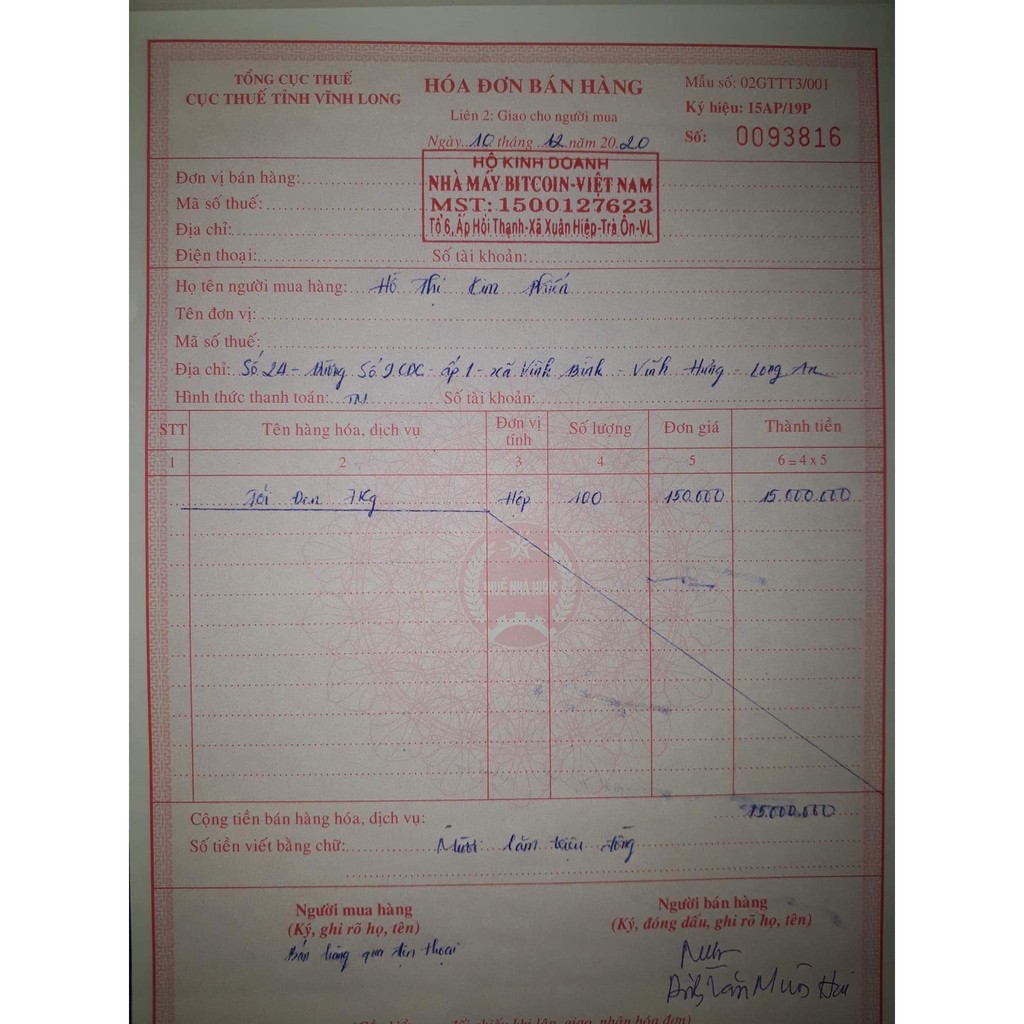 TỔNG CỤC THUẾ
CỤC THUẾ TỈNH VĨNH LONG
HÓA ĐƠN BÁN HÀNG
Liên 2: Giao cho người mua
Ngày 10 tháng 12 năm 2020
Mẫu số: 02GTTT3/001
Ký hiệu: 15AP/19P
Số: 0093816
HỘ KINH DOANH
NHÀ MÁY BITCOIN-VIỆT NAM
MST: 1500127623
Tổ 6, Ấp Hồi Thạnh-Xã Xuân Hiệp-Trà Ôn-VL
Đơn vị bán hàng:
Mã số thuế:
Địa chỉ:
Điện thoại: Số tài khoản:
Họ tên người mua hàng: Hồ Thị Kim
Tên đơn vị:
Mã số thuế:
Địa chỉ: Số 24 - đường Số 9 CDC - ấp 1 - xã Vĩnh Bình - Vĩnh Hưng - Long An
Hình thức thanh toán: TM Số tài khoản:
STT Tên hàng hóa, dịch vụ Đơn vị tính Số lượng Đơn giá Thành tiền
1 2 3 4 5 6 = 4 x 5
Tỏi Đen 7Kg Hộp 100 150.000 15.000.000
THUẾ NHÀ NƯỚC
Cộng tiền bán hàng hóa, dịch vụ: 15.000.000
Số tiền viết bằng chữ: Mười lăm triệu đồng
Người mua hàng
(Ký, ghi rõ họ, tên)
Bán hàng qua điện thoại
Người bán hàng
(Ký, đóng dấu, ghi rõ họ, tên)